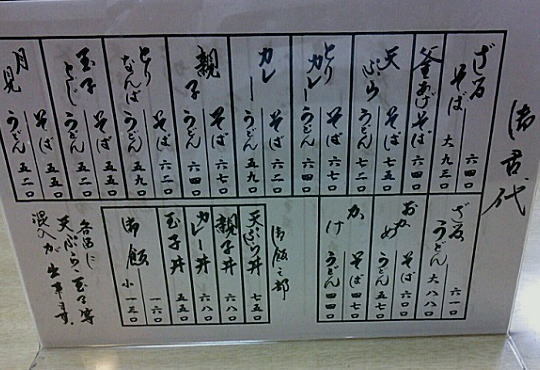 ざるそば 六四〇
大 九三〇
釜あげそば 六四〇
天ぷら そば 七五〇
うどん 七二〇
とりカレー そば 七五〇
うどん 七二〇
カレー そば 六二〇
うどん 五九〇
親子 そば 六七〇
うどん 六四〇
とりなんば そば 六二〇
うどん 五九〇
玉子とじ そば 五五〇
うどん 五二〇
月見 そば 五五〇
うどん 五二〇
ざるうどん 六一〇
大 八八〇
おかめ そば
うどん 五七〇
かけ そば
うどん 四四〇
御飯之部
天ぷら丼 七五〇
親子丼 六八〇
カレー丼 六八〇
玉子丼 五五〇
御飯 一六〇
小 一三〇
各品に
天ぷら・玉子等
混入が出来ます。